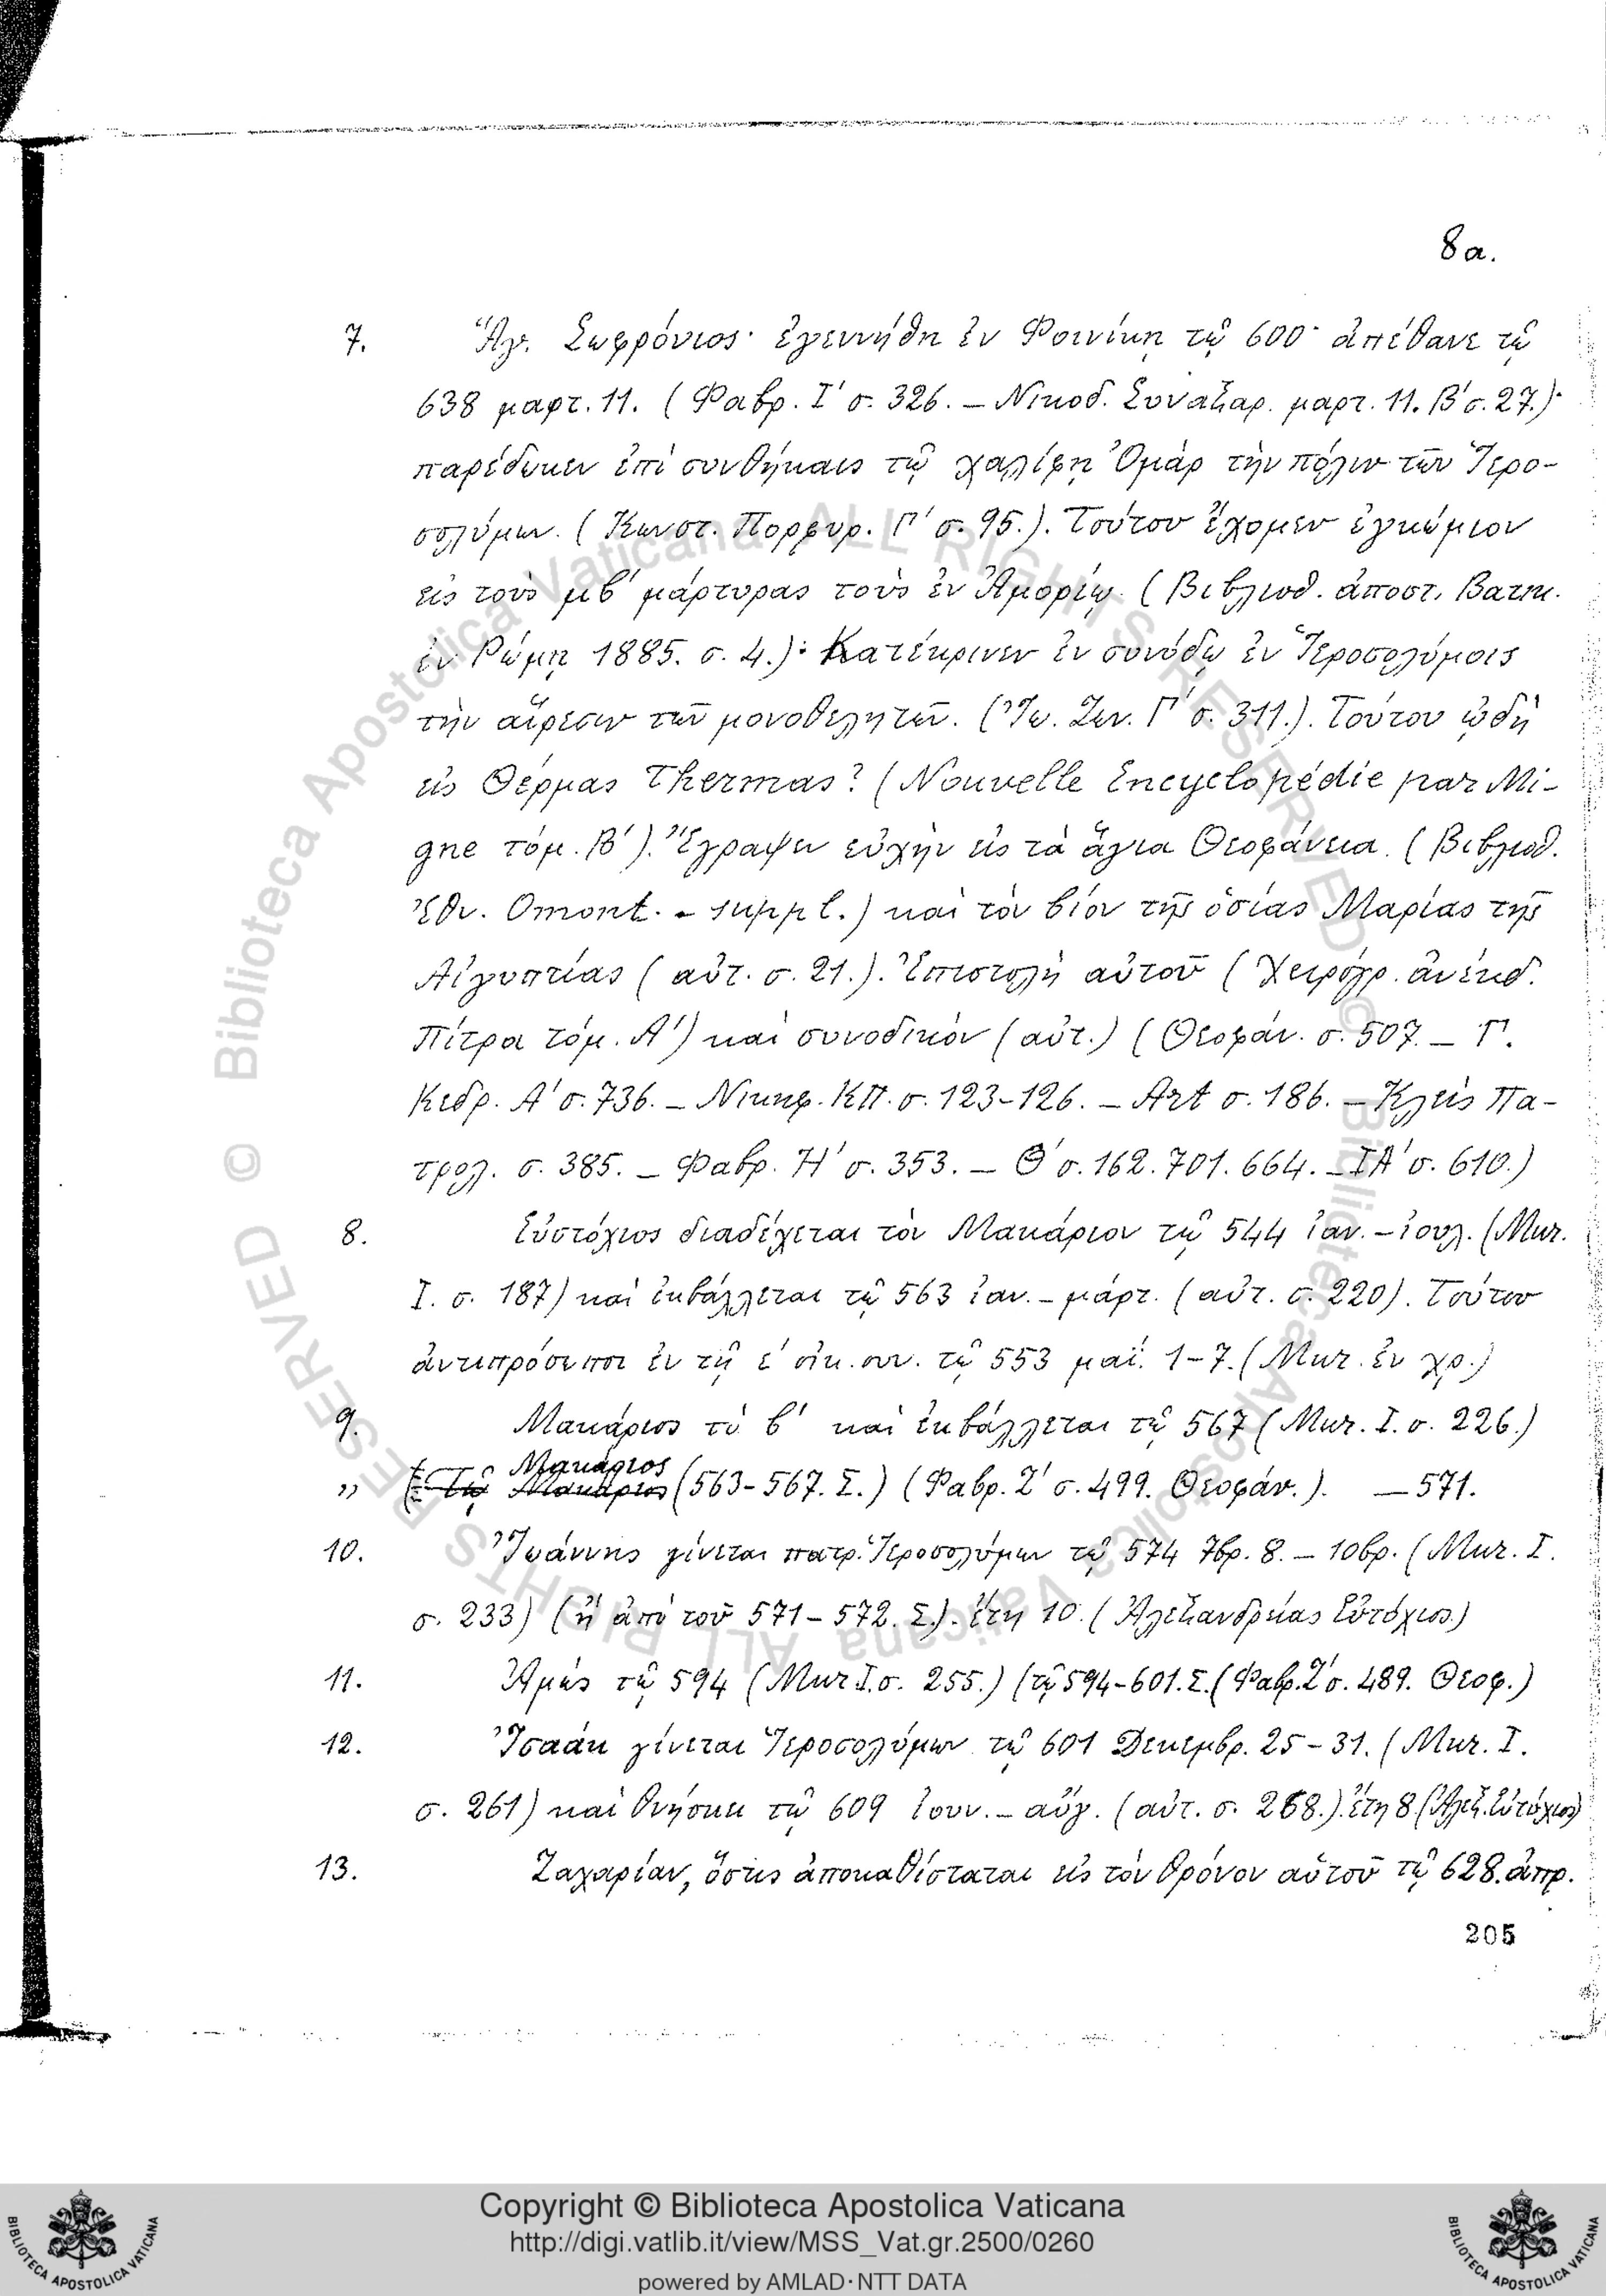 8a.
7. Ἅγ. Σωφρόνιος· ἐγεννήθη ἐν Φοινίκῃ τῷ 600· ἀπέθανε τῷ
638 μαρτ. 11. (Φαβρ. Ι΄ σ. 326. – Νικοδ. Συναξαρ. μαρτ. 11. Β΄ σ. 27.)·
παρέδωκεν ἐπὶ συνθήκαις τῷ χαλίφῃ Ὀμὰρ τὴν πόλιν τῶν Ἱερο-
σολύμων. (Κωνστ. Πορφυρ. Γ΄ σ. 95.). Τούτου ἔχομεν ἐγκώμιον
εἰς τοὺς μβ΄ μάρτυρας τοὺς ἐν Ἀμορίῳ. (Βιβλιοθ. ἀποστ. Βατικ.
ἐν Ῥώμῃ 1885. σ. 4.)· Κατέκρινεν ἐν συνόδῳ ἐν Ἱεροσολύμοις
τὴν αἵρεσιν τῶν μονοθελητῶν. (Ἰω. Ζων. Γ΄ σ. 311.). Τούτου ᾠδὴ
εἰς Θέρμας Thermas? (Nouvelle Encyclopédie par Mi-
gne τόμ. Β΄). Ἔγραψεν εὐχὴν εἰς τὰ ἅγια Θεοφάνεια. (Βιβλιοθ.
Ἐθν. Omont. - suppl.) καὶ τὸν βίον τῆς ὁσίας Μαρίας τῆς
Αἰγυπτίας (αὐτ. σ. 21.). Ἐπιστολὴ αὐτοῦ (Χειρόγρ. ἀνέκδ.
Πίτρα τόμ. Α΄) καὶ συνοδικὸν (αὐτ.) (Θεοφάν. σ. 507. – Γ.
Κεδρ. Α΄ σ. 736. – Νικηφ. ΚΠ. σ. 123-126. – Art σ. 186. – Κλεὶς Πα-
τρολ. σ. 385. – Φαβρ. Η΄ σ. 353. – Θ΄ σ. 162. 701. 664. – ΙΑ΄ σ. 610.)
8. Εὐστόχιος διαδέχεται τὸν Μακάριον τῷ 544 ἰαν. – ἰουλ. (Mur.
I. σ. 187) καὶ ἐκβάλλεται τῷ 563 ἰαν. – μάρτ. (αὐτ. σ. 220). Τούτου
ἀντιπρόσωποι ἐν τῇ ε΄ οἰκ. συν. τῷ 553 μαΐ. 1-7. (Mur. ἐν χρ.)
9. Μακάριος τὸ β΄ καὶ ἐκβάλλεται τῷ 567 (Mur. I. σ. 226.)
" Μακάριος (563-567. Σ.) (Φαβρ. Ζ΄ σ. 499. Θεοφάν.). – 571.
10. Ἰωάννης γίνεται πατρ. Ἱεροσολύμων τῷ 574 7βρ. 8. – 10βρ. (Mur. I.
σ. 233) (ἢ ἀπὸ τοῦ 571 – 572. Σ.). ἔτη 10. (Ἀλεξανδρείας Εὐτύχιος.)
11. Ἀμὼς τῷ 594 (Mur I. σ. 255.) (τῷ 594-601. Σ. (Φαβρ. Ζ΄ σ. 489. Θεοφ.)
12. Ἰσαὰκ γίνεται Ἱεροσολύμων τῷ 601 Δεκεμβρ. 25-31. (Mur. I.
σ. 261) καὶ θνήσκει τῷ 609 ἰουν. – αὔγ. (αὐτ. σ. 268.). ἔτη 8. (Ἀλεξ. Εὐτύχιος)
13. Ζαχαρίαν, ὅστις ἀποκαθίσταται εἰς τὸν θρόνον αὐτοῦ τῷ 628. ἀπρ.
205
© Biblioteca Apostolica Vaticana ALL RIGHTS RESERVED
Copyright © Biblioteca Apostolica Vaticana
http://digi.vatlib.it/view/MSS_Vat.gr.2500/0260
powered by AMLAD·NTT DATA
BIBLIOTECA APOSTOLICA VATICANA
BIBLIOTECA APOSTOLICA VATICANA